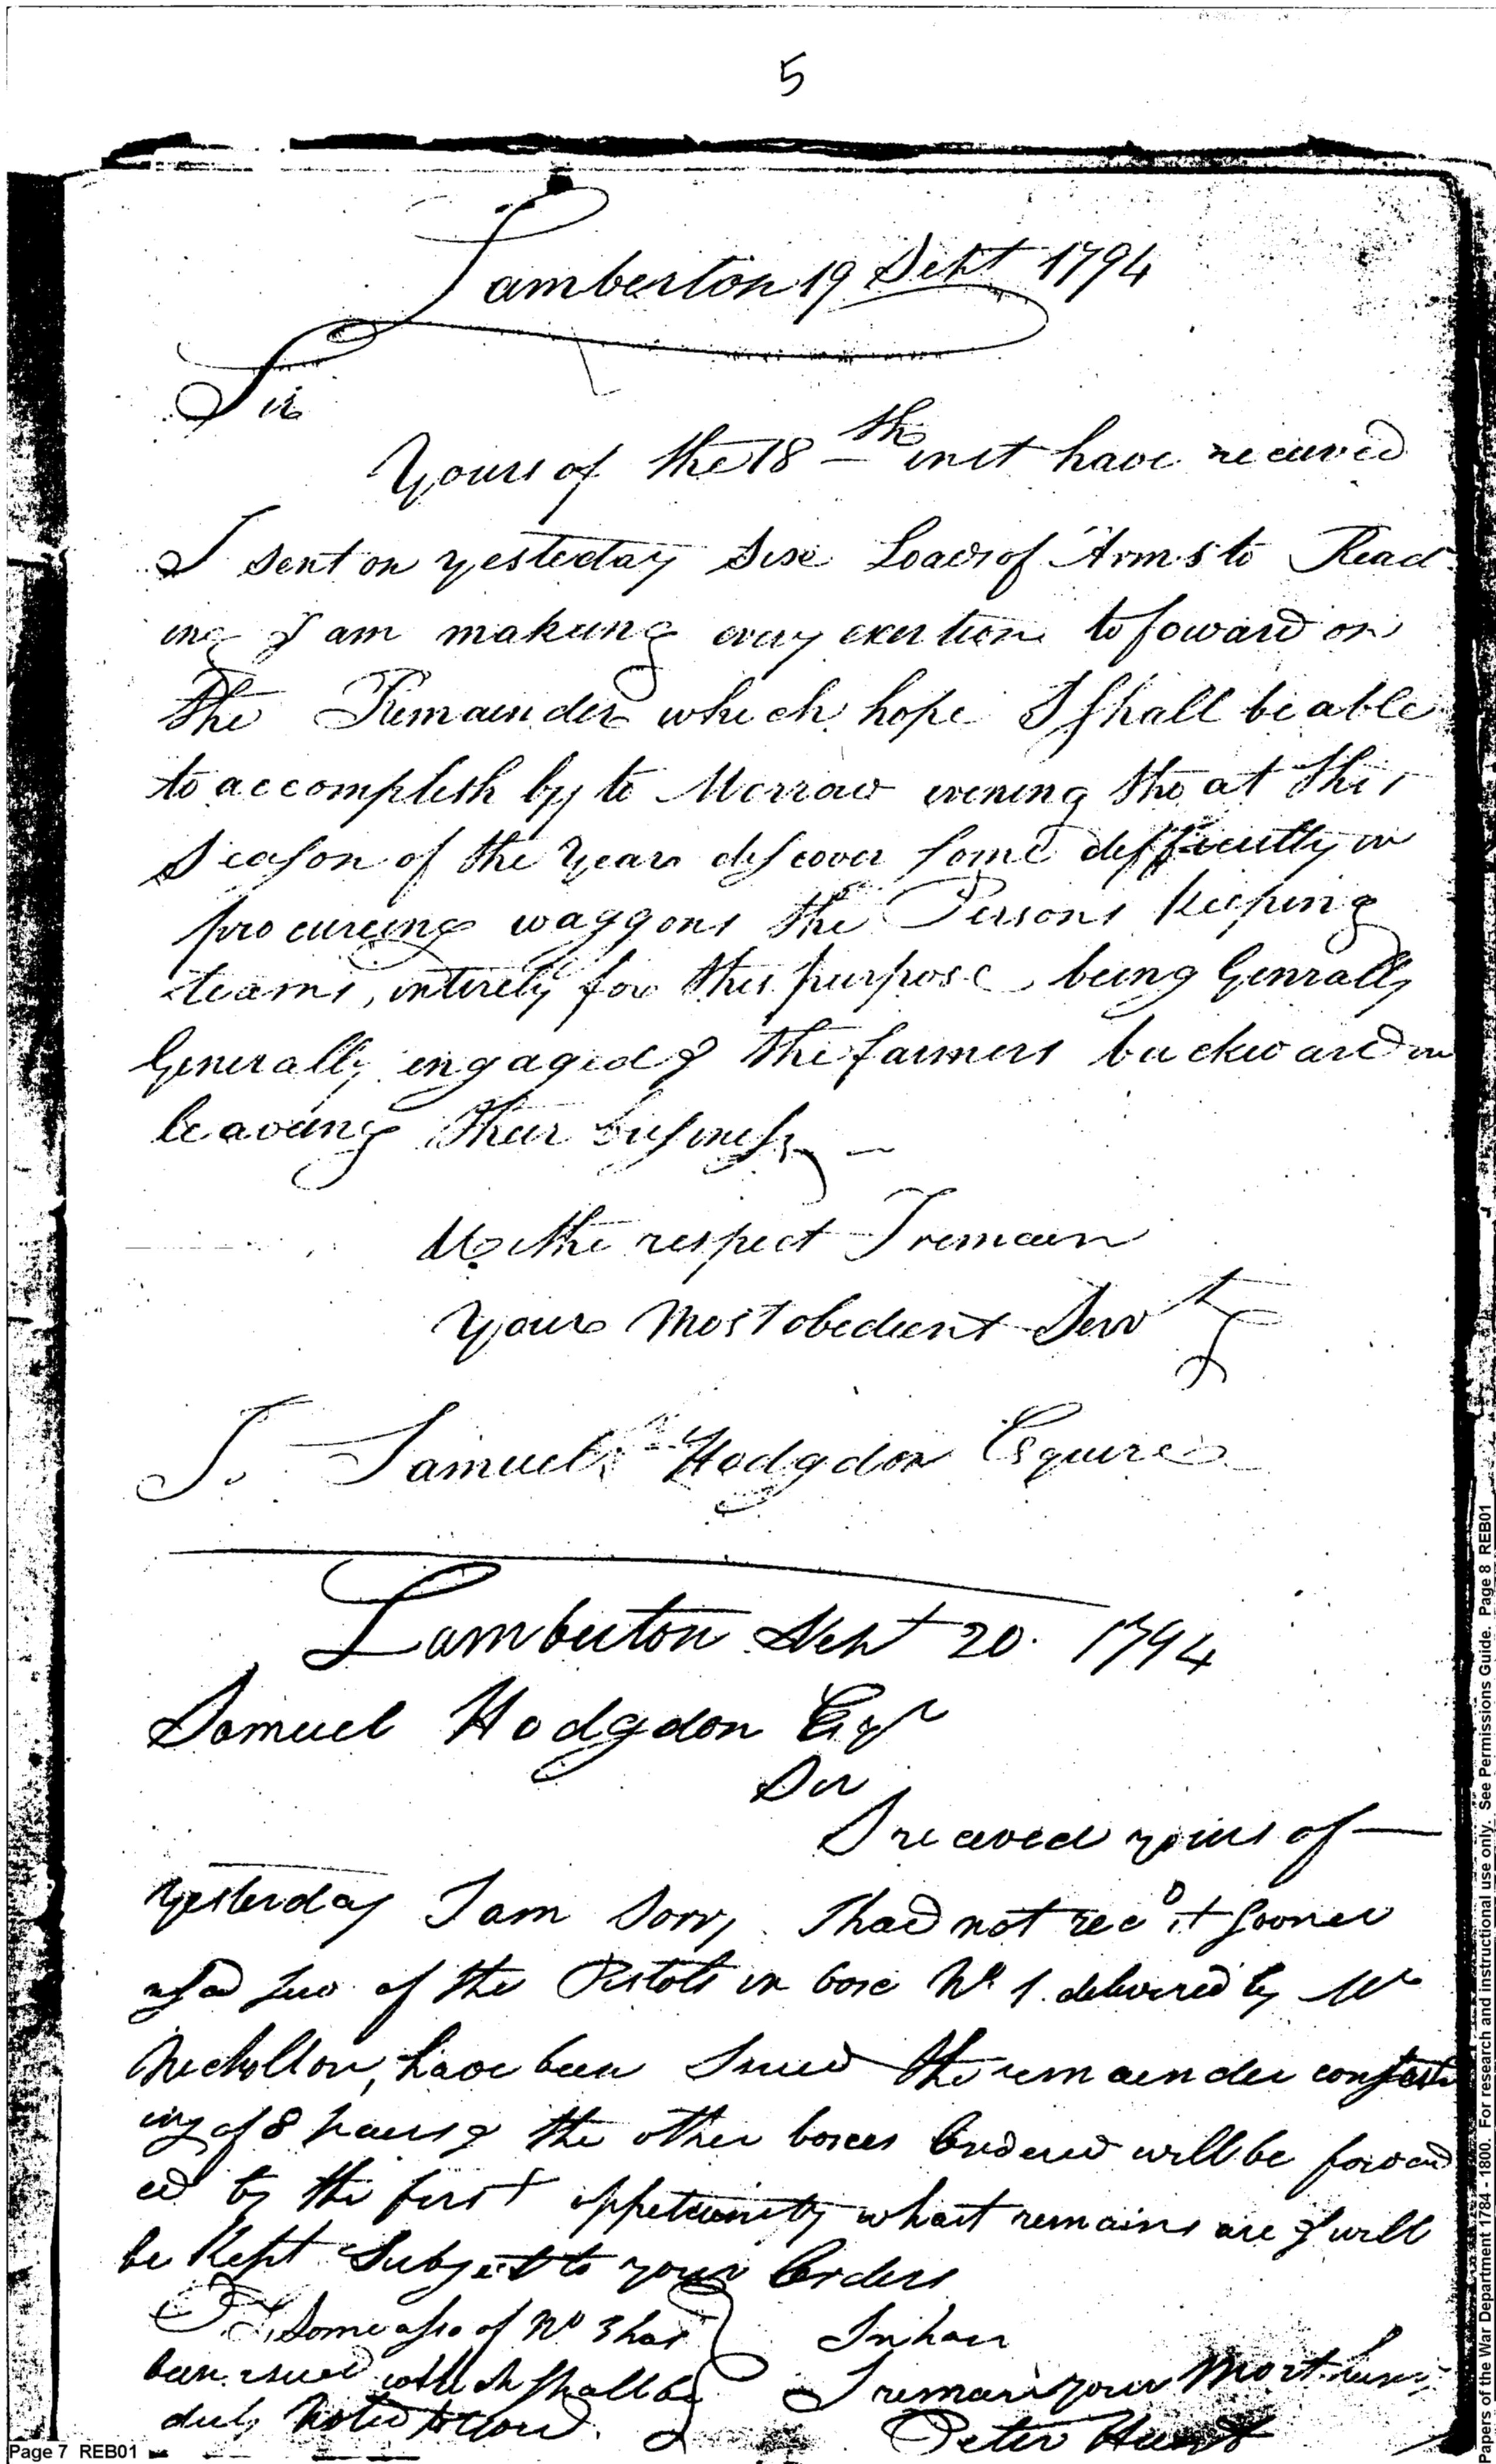 5
Lamberton 19 Sept 1794
Sir
Yours of the 18th inst have received
I sent on yesteday Six Loads of Arms to Read
ing I am makeing every exertion to foward on
the Remainder which hope I shall be able
to accomplish by to Morrow evening tho at this
Season of the Year discover some difficulty in
procureing waggons the Persons keeping
teams, intirely for this purpose being Genrally
Generally engaged & the farmers backward in
leaveing their business —
With respect I remain
Your Most obedient Servt
To Samuel Hodgdon Esquire
Lamberton Sept 20. 1794
Samuel Hodgdon Esqr
Sir
I receved yours of —
Yesterday I am Sorry I had not recd it sooner
as two of the Pistols in box No 1. delivered by Mr
Nicholson, have been Issued the remainder consist
ing of 8 pairs & the other boxes Ordered will be foward
ed by the first oppetunity what remains are & will
be Kept Subject to your Orders
PS, Some also of No 3 has
been issued which shall be
duly Noted
In haste
I remain your Most
Peter Hunt
Page 7 REB01
Papers of the War Department 1784 - 1800. For research and instructional use only. See Permissions Guide. Page 8 REB01